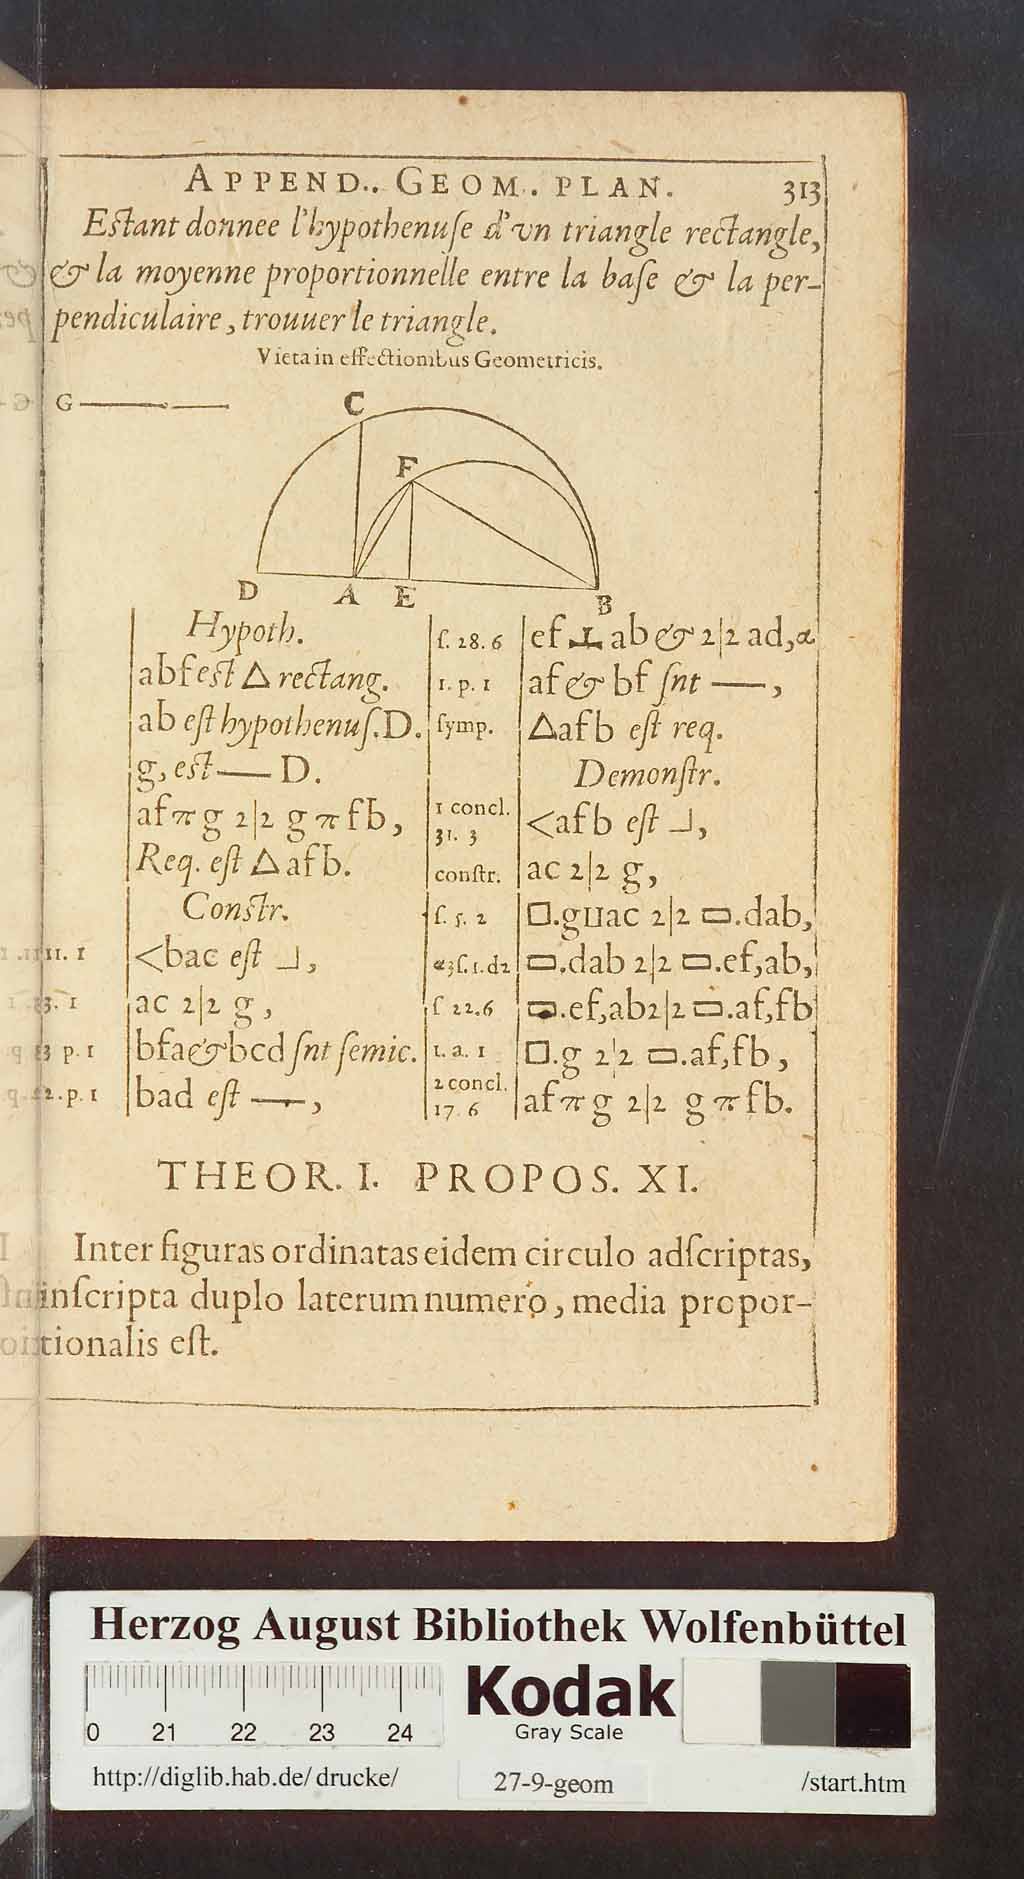 APPEND.. GEOM. PLAN. 313
Estant donnee l'hypothenuſe d'vn triangle rectangle,
& la moyenne proportionnelle entre la baſe & la per-
pendiculaire, trouuer le triangle.
Vieta in effectionibus Geometricis.
G
C
F
D A E B
Hypoth.
abf est △ rectang.
ab eſt hypothenuſ. D.
g, est — D.
af π g 2|2 g π fb,
Req. eſt △ afb.
Constr.
11. 1 <bac eſt ⅃,
33. 1 ac 2|2 g,
p. 1 bfa & bcd ſnt ſemic.
2. p. 1 bad eſt —,
ſ. 28. 6 ef ⊥ ab & 2|2 ad, α
1. p. 1 af & bf ſnt —,
ſymp. △afb eſt req.
Demonſtr.
1 concl.
31. 3 <afb eſt ⅃,
conſtr. ac 2|2 g,
ſ. 5. 2 □.g⊔ac 2|2 ▭.dab,
α3ſ.1.d2 ▭.dab 2|2 ▭.ef,ab,
ſ 22.6 ▭.ef,ab2|2 ▭.af,fb
1. a. 1 □.g 2|2 ▭.af,fb,
2 concl.
17. 6 af π g 2|2 g π fb.
THEOR. I. PROPOS. XI.
Inter figuras ordinatas eidem circulo adſcriptas,
inſcripta duplo laterum numero, media propor-
tionalis eſt.
Herzog August Bibliothek Wolfenbüttel
0 21 22 23 24
Kodak
Gray Scale
http://diglib.hab.de/drucke/ 27-9-geom /start.htm